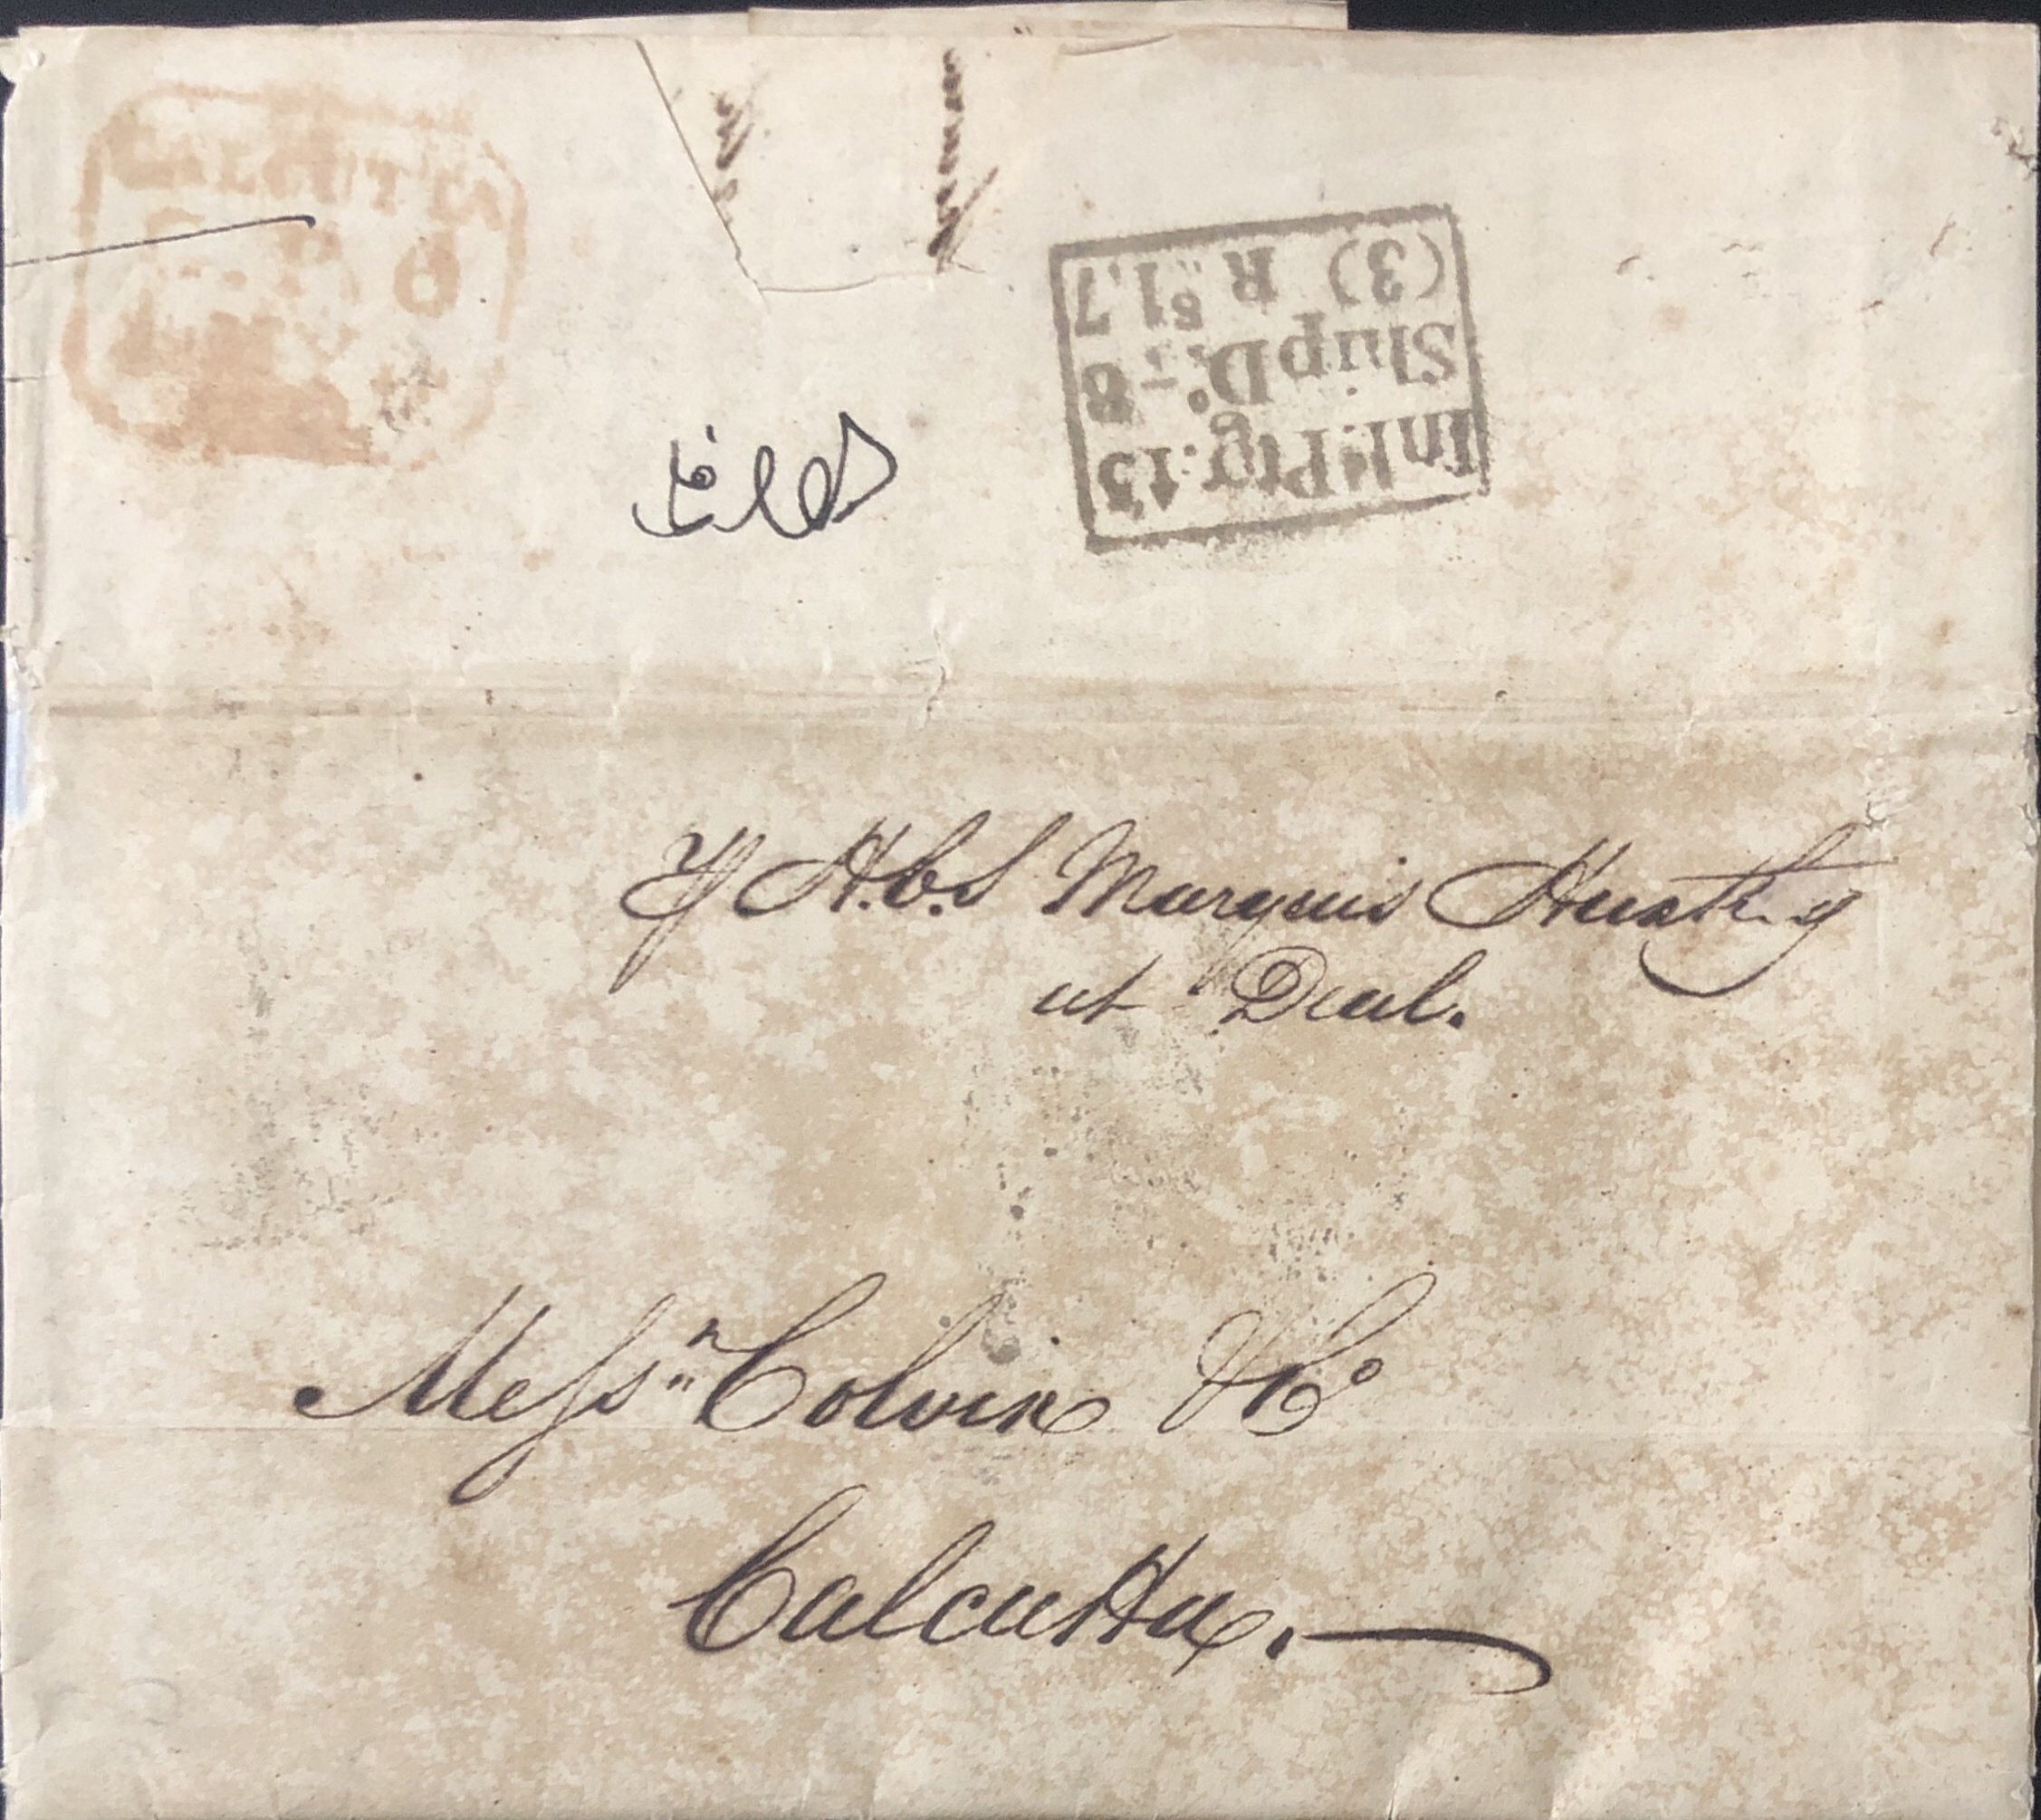 CALCUTTA
Inl.d Ptg. 13
Ship D.o - 8
(3) R. s 1, 7
⅌ H.C.S Marquis Hastings
at Deal.
Mess.rs Colvin & Co
Calcutta.